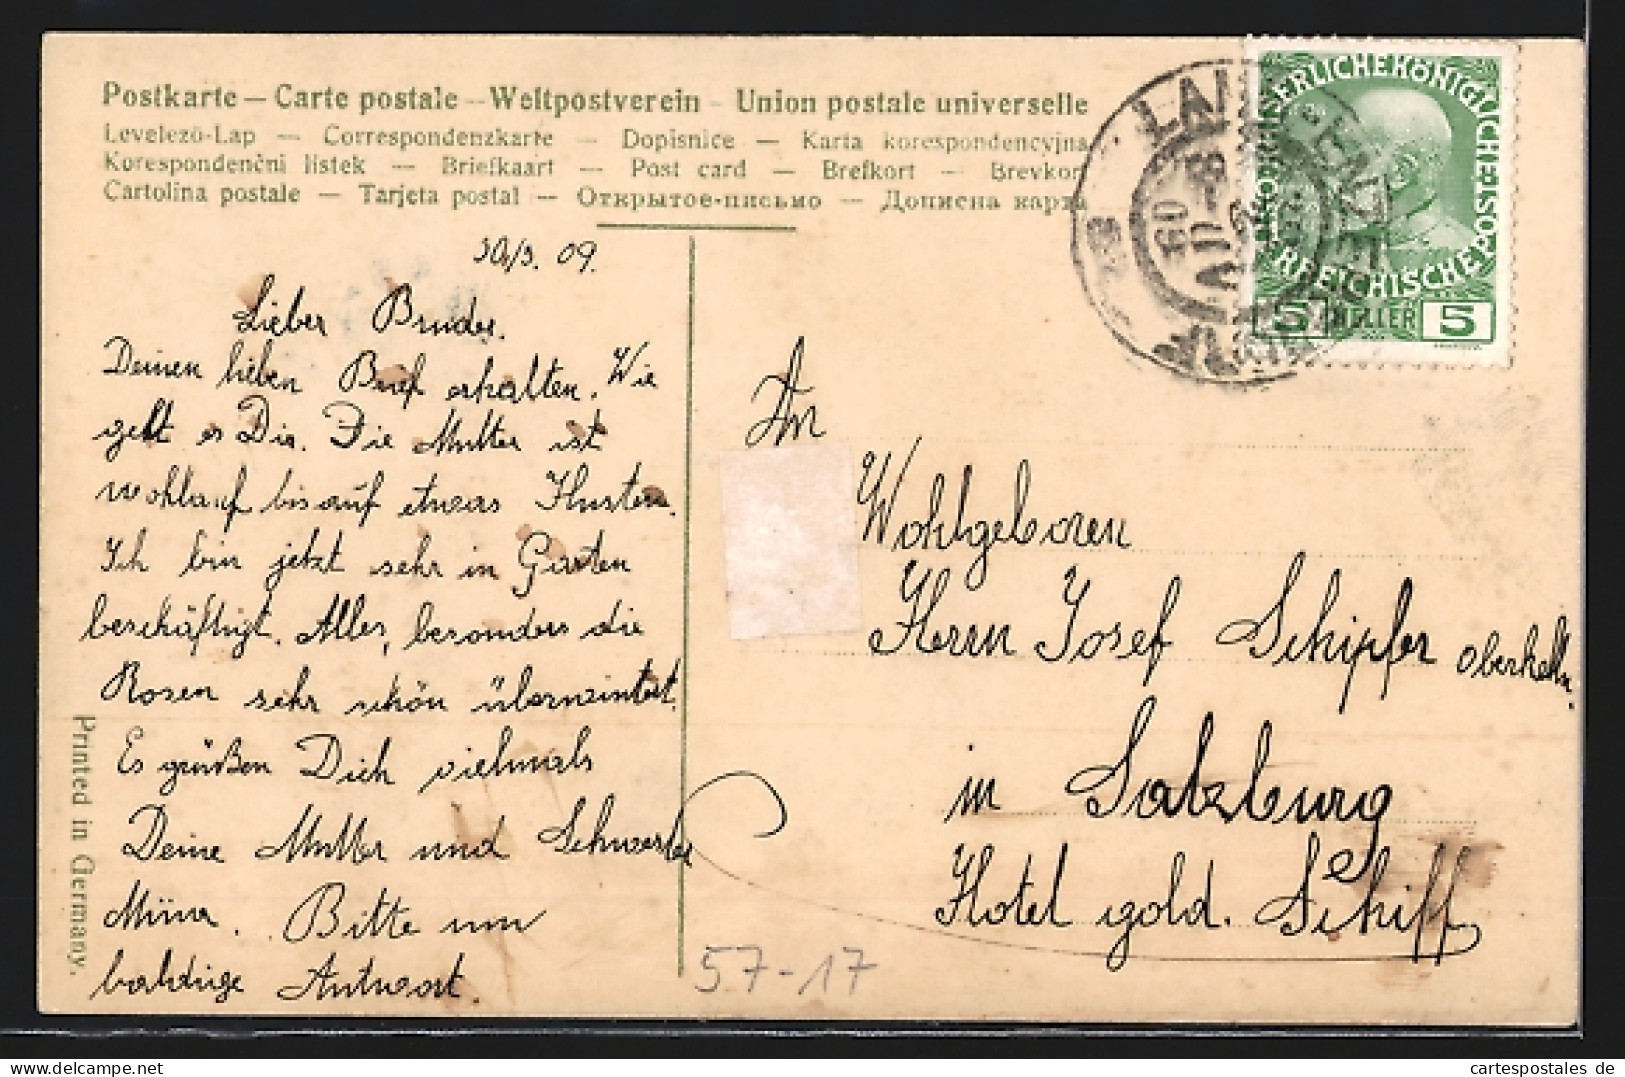 Postkarte — Carte postale — Weltpostverein – Union postale universelle
Levelező-Lap — Correspondenzkarte — Dopisnice — Karta korespondencyjna
Korespondenčni listek — Briefkaart — Post card — Brefkort — Brevkort
Cartolina postale — Tarjeta postal — Открытое-письмо — Дописна карта
KAISERLICHEKÖNIGLICHE ÖSTERREICHISCHE POST
5 HELLER 5
09
30/3. 09.
Lieber Bruder.
Deinen lieben Brief erhalten. Wie
geht es Dir. Die Mutter ist
wohlauf bis auf etwas Husten.
Ich bin jetzt sehr in Garten
beschäftigt. Alles, besonders die
Rosen sehr schön überwintert.
Es grüßen Dich vielmals
Deine Mutter und Schwester
Bitte um
baldige Antwort.
An
Wohlgeboren
Herrn Josef Schipfer Oberkelln.
in Salzburg
Hotel gold. Schiff
57-17
Printed in Germany.
www.delcampe.net
cartespostales de